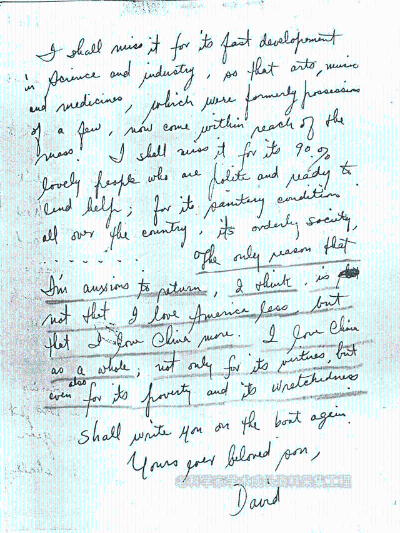 I shall miss it for its fast developement
in science and industry, so that arts, music
and medicines, which were formerly possessions
of a few, now come within reach of the
mass. I shall miss it for its 90%
lovely people who are polite and ready to
lend help; for its sanitary condition
all over the country, its orderly society,
. . . . . . . The only reason that
I'm auxious to return, I think, is
not that I love America less, but
that I love China more. I love China
as a whole; not only for its virtues, but
even also for its poverty and its wretchedness
Shall write you on the boat again.
Yours ever beloved son,
David